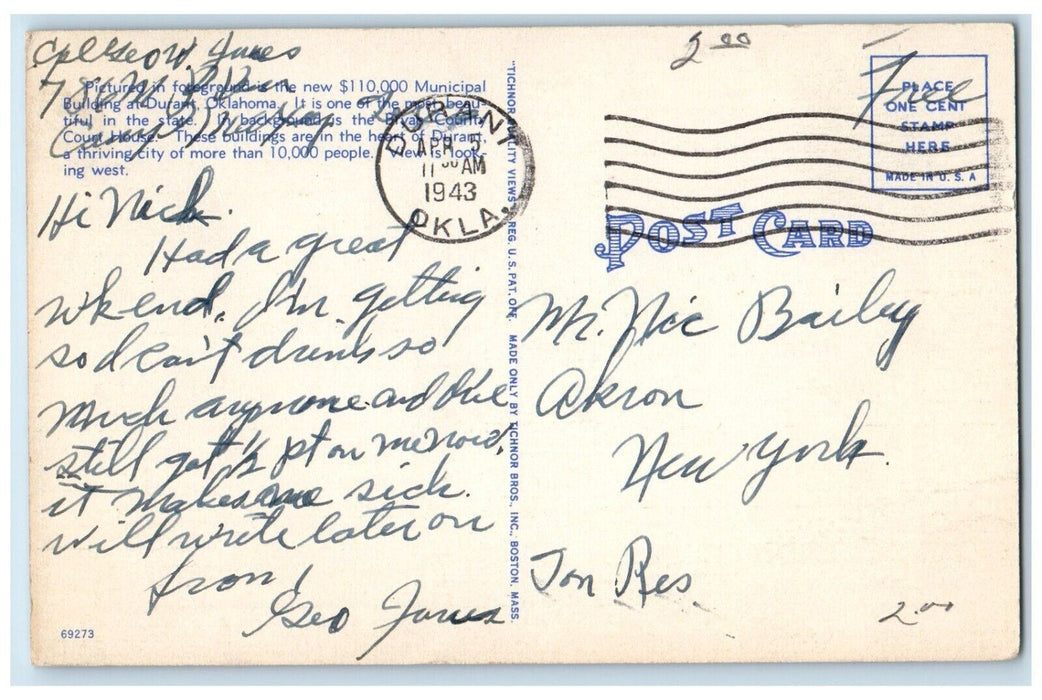 Cpl Geo W. Jones
Pictured in foreground is the new $110,000 Municipal
Building at Durant, Oklahoma. It is one of the most beau-
tiful in the state. In background is the Bryan County
Court House. These buildings are in the heart of Durant,
a thriving city of more than 10,000 people. View is look-
ing west.
Hi Nick.
Had a great
wkend. I'm getting
so I can't drink so
much anymore and I've
still got ½ pt on me now,
it makes me sick.
will write later on
from,
Geo Jones
69273
"TICHNOR QUALITY VIEWS," REG. U. S. PAT. OFF. MADE ONLY BY TICHNOR BROS., INC., BOSTON, MASS.
DURANT
APR 5
11 30 AM
1943
OKLA.
2.00
Free
PLACE
ONE CENT
STAMP
HERE
MADE IN U. S. A
POST CARD
Mr. Nic Bailey
Akron
New York.
Ton Res.
2.00